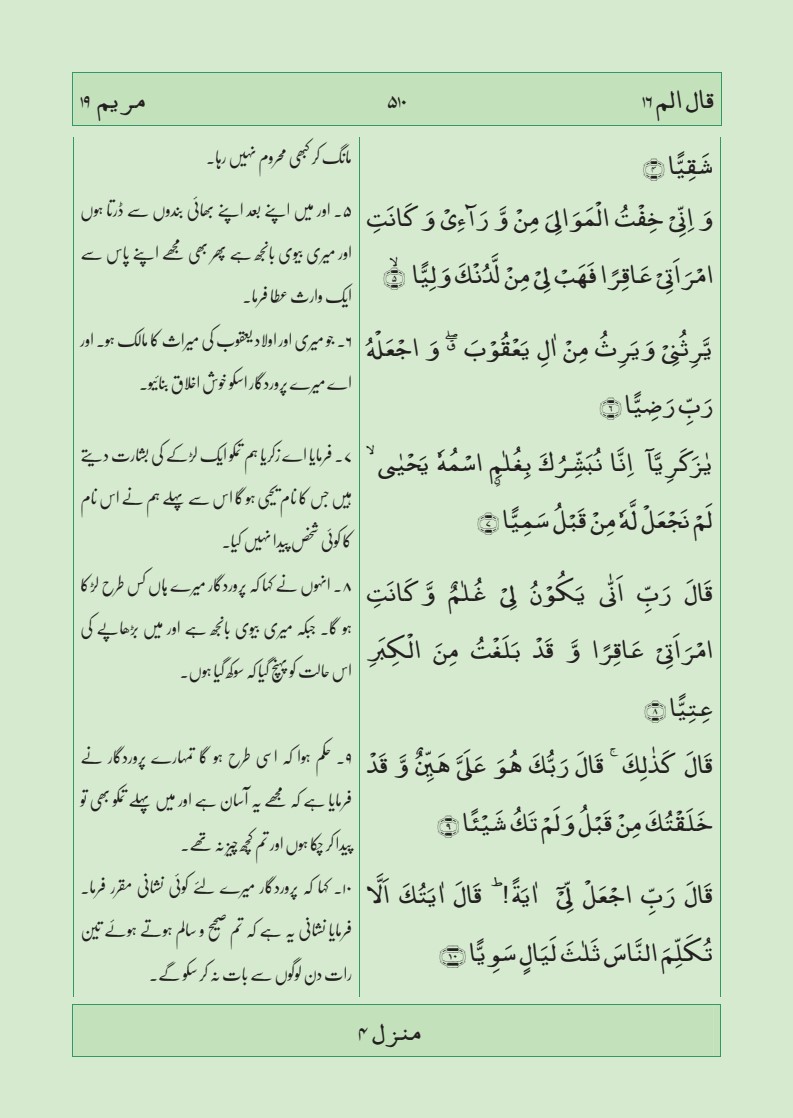 قال الم ۱۶
۵۱۰
مریم ۱۹
شَقِیًّا ﴿۴﴾
وَ اِنِّیۡ خِفۡتُ الۡمَوَالِیَ مِنۡ وَّ رَآءِیۡ وَ کَانَتِ
امۡرَاَتِیۡ عَاقِرًا فَهَبۡ لِیۡ مِنۡ لَّدُنۡکَ وَلِیًّا ۙ﴿۵﴾
یَّرِثُنِیۡ وَ یَرِثُ مِنۡ اٰلِ یَعۡقُوۡبَ ٭ۖ وَ اجۡعَلۡهُ
رَبِّ رَضِیًّا ﴿۶﴾
یٰزَکَرِیَّاۤ اِنَّا نُبَشِّرُکَ بِغُلٰمِۣ اسۡمُهٗ یَحۡیٰی ۙ
لَمۡ نَجۡعَلۡ لَّهٗ مِنۡ قَبۡلُ سَمِیًّا ﴿۷﴾
قَالَ رَبِّ اَنّٰی یَکُوۡنُ لِیۡ غُلٰمٌ وَّ کَانَتِ
امۡرَاَتِیۡ عَاقِرًا وَّ قَدۡ بَلَغۡتُ مِنَ الۡکِبَرِ
عِتِیًّا ﴿۸﴾
قَالَ کَذٰلِکَ ۚ قَالَ رَبُّکَ هُوَ عَلَیَّ هَیِّنٌ وَّ قَدۡ
خَلَقۡتُکَ مِنۡ قَبۡلُ وَ لَمۡ تَکُ شَیۡئًا ﴿۹﴾
قَالَ رَبِّ اجۡعَلۡ لِّیۡۤ اٰیَةً! ؕ قَالَ اٰیَتُکَ اَلَّا
تُکَلِّمَ النَّاسَ ثَلٰثَ لَیَالٍ سَوِیًّا ﴿۱۰﴾
مانگ کر کبھی محروم نہیں رہا۔
۵۔ اور میں اپنے بعد اپنے بھائی بندوں سے ڈرتا ہوں
اور میری بیوی بانجھ ہے پھر بھی مجھے اپنے پاس سے
ایک وارث عطا فرما۔
۶۔ جو میری اور اولاد یعقوب کی میراث کا مالک ہو۔ اور
اے میرے پروردگار اسکو خوش اخلاق بنائیو۔
۷۔ فرمایا اے زکریا ہم تمکو ایک لڑکے کی بشارت دیتے
ہیں جس کا نام یحیٰی ہو گا اس سے پہلے ہم نے اس نام
کا کوئی شخص پیدا نہیں کیا۔
۸۔ انہوں نے کہا کہ پروردگار میرے ہاں کس طرح لڑکا
ہو گا۔ جبکہ میری بیوی بانجھ ہے اور میں بڑھاپے کی
اس حالت کو پہنچ گیا کہ سوکھ گیا ہوں۔
۹۔ حکم ہوا کہ اسی طرح ہو گا تمہارے پروردگار نے
فرمایا ہے کہ مجھے یہ آسان ہے اور میں پہلے تمکو بھی تو
پیدا کر چکا ہوں اور تم کچھ چیز نہ تھے۔
۱۰۔ کہا کہ پروردگار میرے لئے کوئی نشانی مقرر فرما۔
فرمایا نشانی یہ ہے کہ تم صحیح و سالم ہوتے ہوئے تین
رات دن لوگوں سے بات نہ کر سکو گے۔
منزل ۴